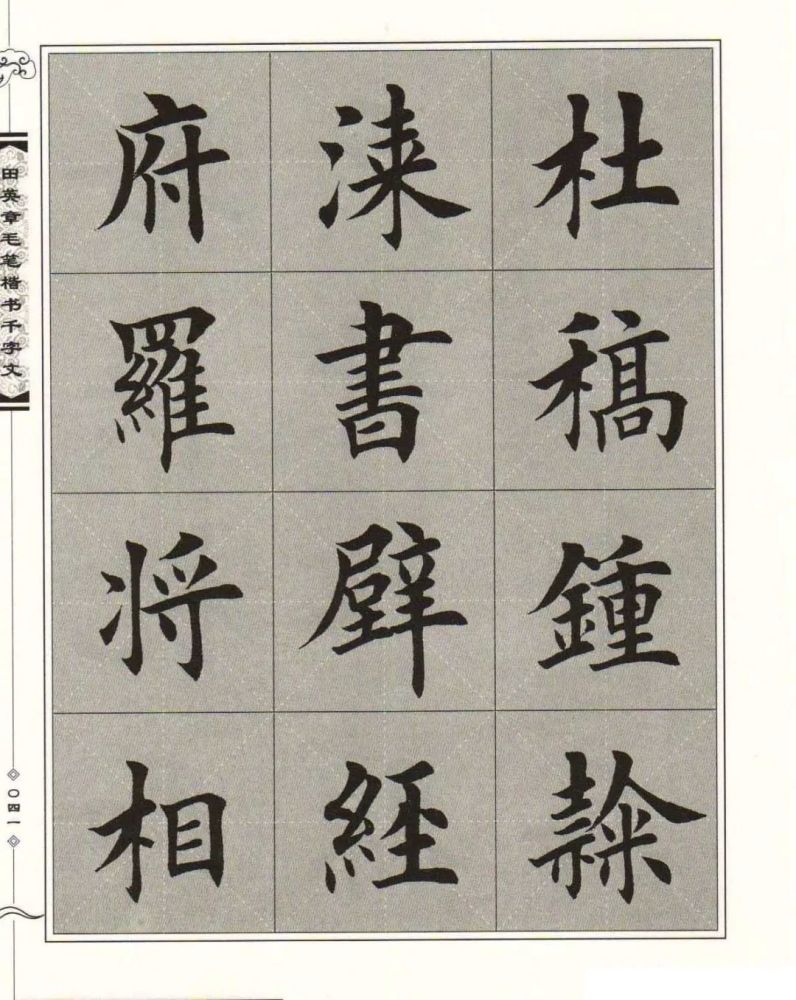 杜稿鍾隸
漆書壁經
府羅将相
田英章毛笔楷书千字文
〇四一